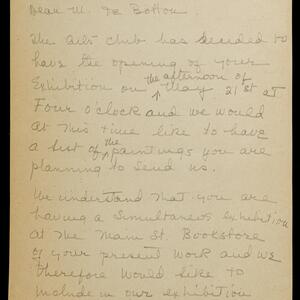 Dear M. De Botton
The Arts Club has decided to
have the opening of your
Exhibition on the afternoon of May 21st at
Four o'clock and we would
at this time like to have
a list of the paintings you are
planning to send us.
We understand that you are
having a Simultaneous Exhibition
at the Main St. Bookstore
of your present work and we
therefore would like to
include in our exhibition